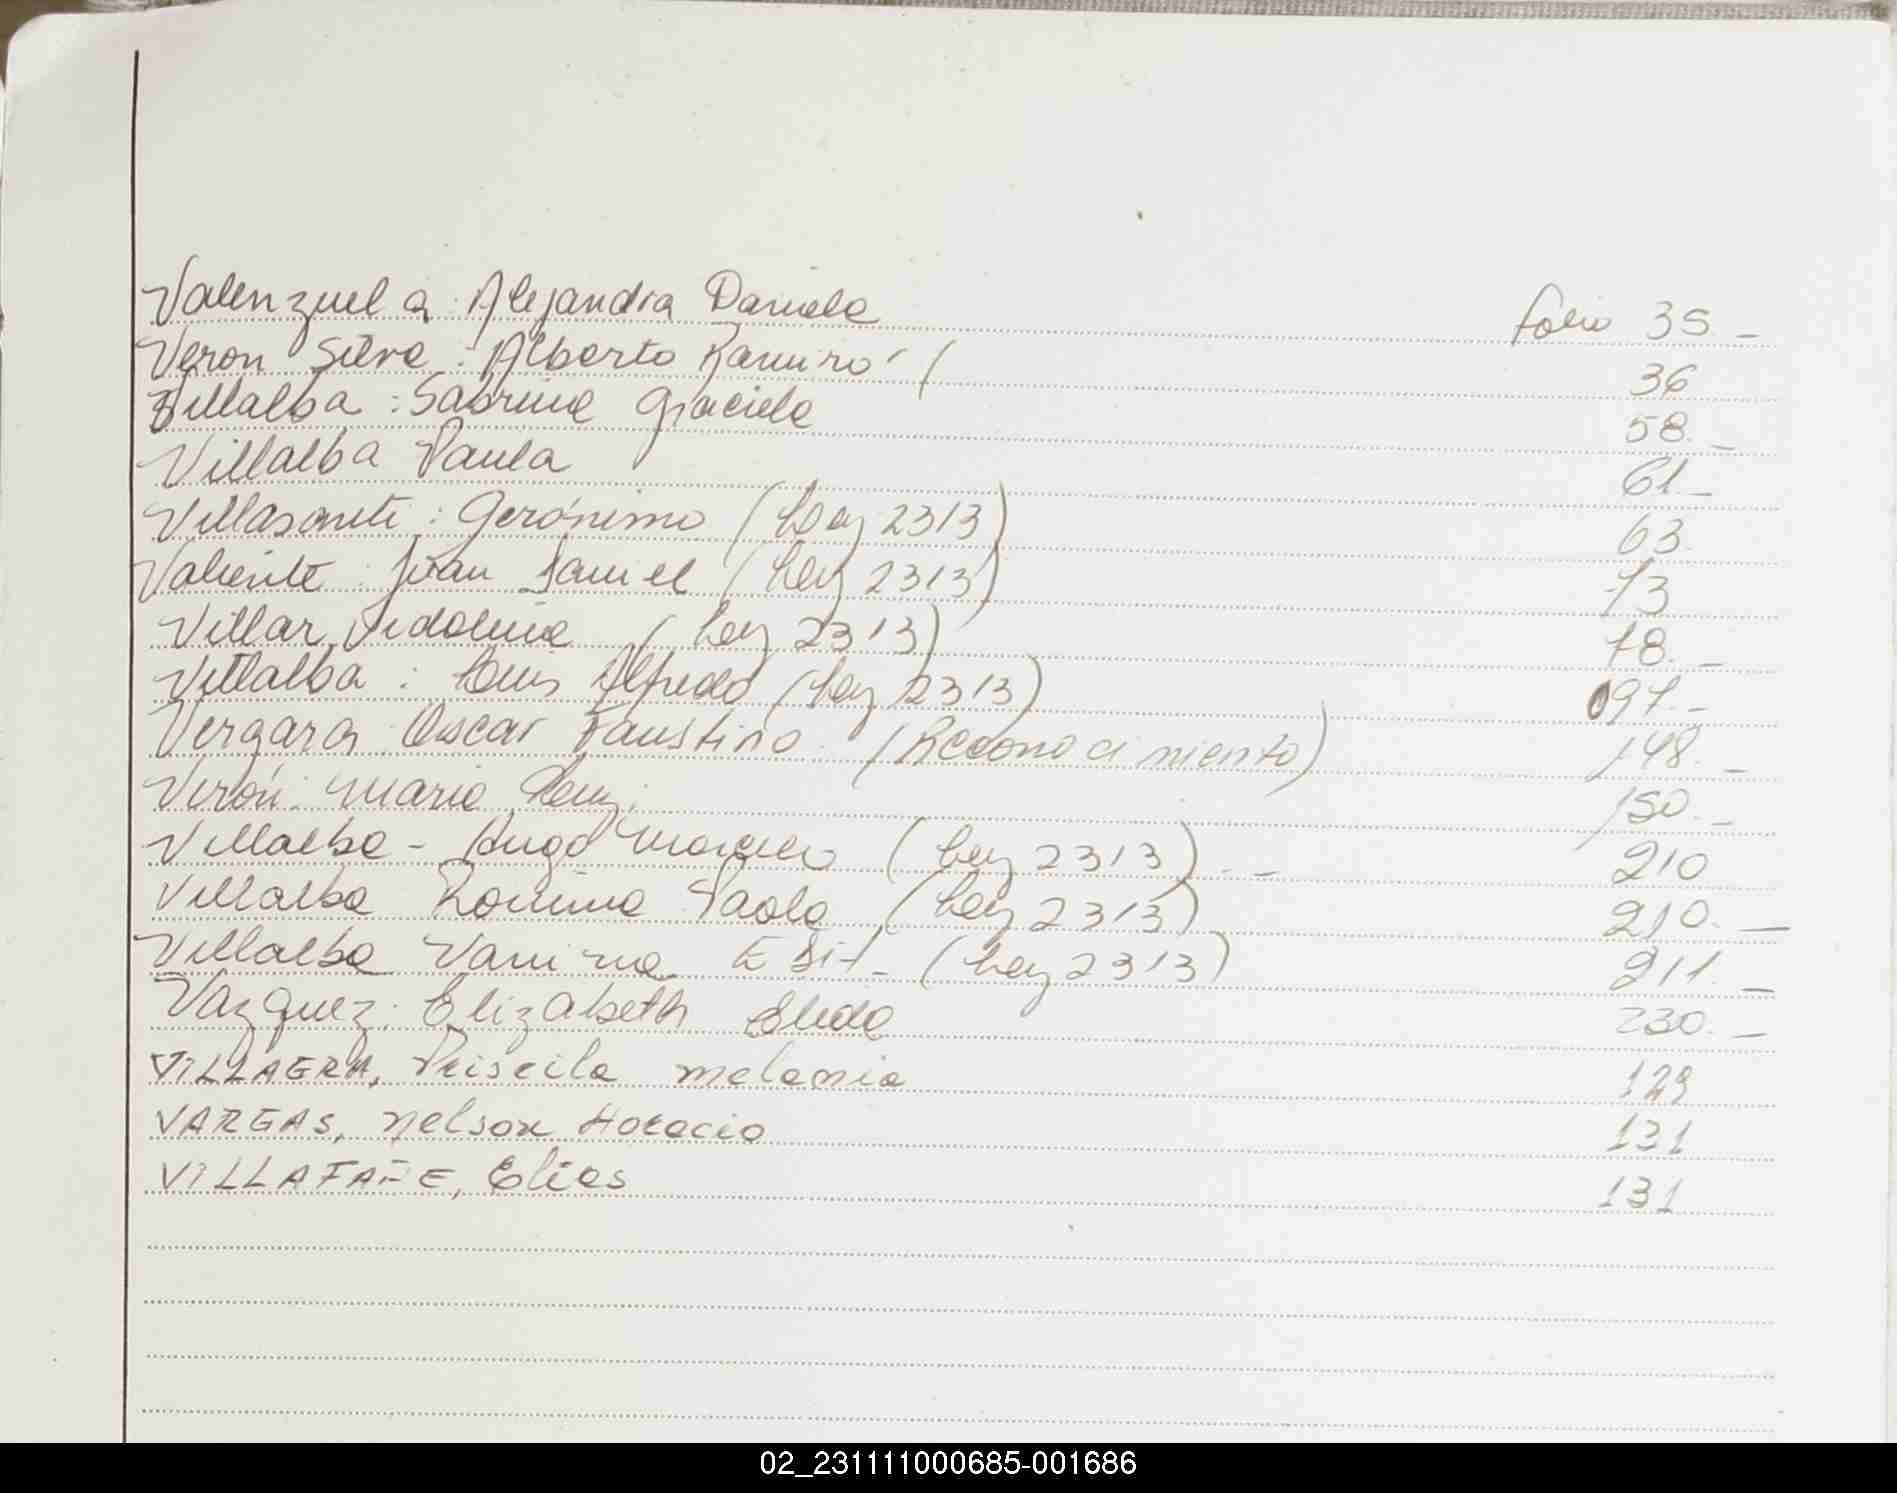 Valenzuela : Alejandra Daniela folio 35 -
Veron Silva : Alberto Ramiro ( 36
Villalba : Sabrina Graciela 58. -
Villalba Paula 61. -
Villasanti : Gerónimo (Ley 2313) 63.
Valiente : Juan Daniel (Ley 2313) 73
Villar (Ley 2313) 78. -
Villalba : Luis Alfredo (Ley 2313) 097. -
Vergara Oscar Faustino (Reconocimiento) 148. -
Verón. Mario 150. -
Villalba - Hugo Marcelo (Ley 2313) . - 210
Villalba Romina Paola (Ley 2313) 210. -
Villalba Vanina Edit (Ley 2313) 211. -
Vazquez. Elizabeth Elida 230. -
VILLAGRA, Priscila Melania 129
VARGAS, Nelson Horacio 131
VILLAFAÑE, Elias 131
02_231111000685-001686